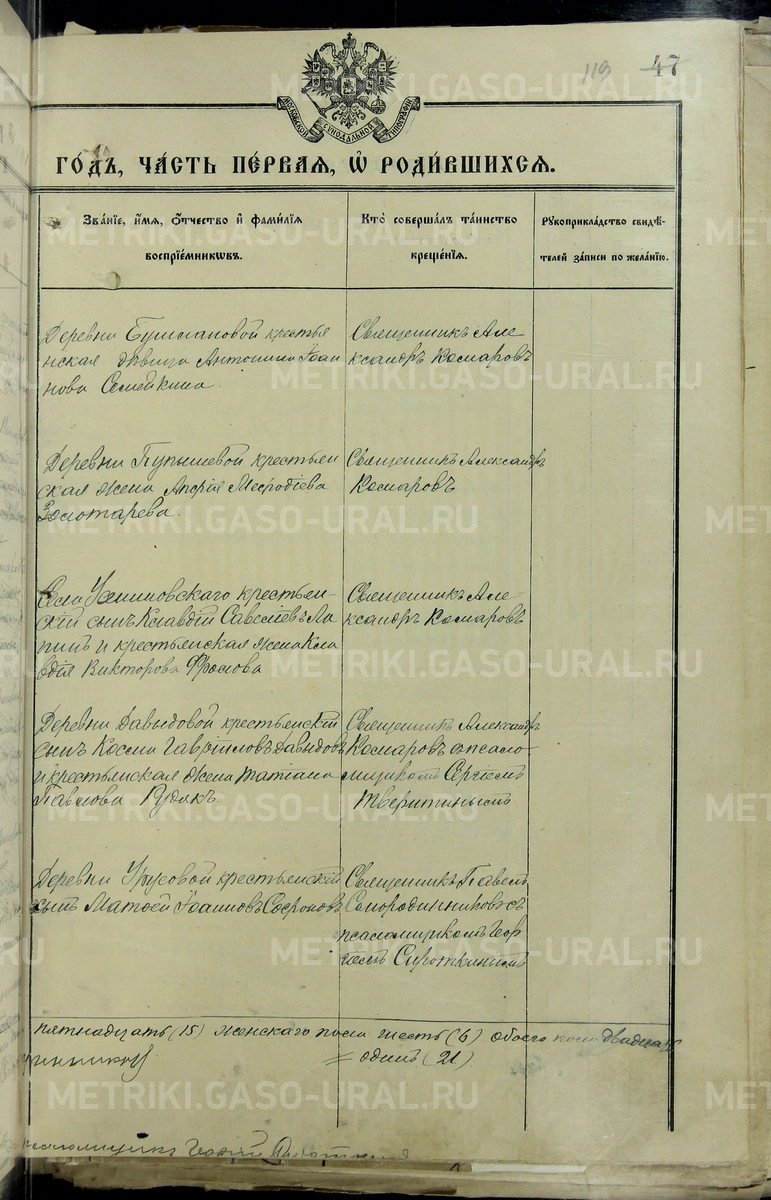 119 47
МОСКОВСКОЙ СѴНОДАЛЬНОЙ ТИПОГРАФІИ
ГОДЪ, ЧАСТЬ ПЕРВАЯ, Ѽ РОДИВШИХСЯ.
Званіе, имя, отчество и фамилія
воспріемниковъ.
Кто совершалъ таинство
крещенія.
Рукоприкладство свидѣ-
телей записи по желанію.
Деревни крестья
нская дѣвица Антонина Іоан
нова Семейкина
Священникъ Але
ксандръ Комаровъ
Деревни Пупышевой крестьян
ская жена Меѳодіева
Золотарева.
Священникъ Александръ
Комаровъ
Села крестьян-
скій сынъ Клавдій Савеліевъ Ла
пинъ и крестьянская жена Кла
вдія Викторова Фролова
Священникъ Але-
ксандръ Комаровъ
Деревни Давыдовой крестьянскій
сынъ Косма Гавріиловъ Давыдовъ
и крестьянская жена Татіана
Павлова Рудакъ
Священникъ Александръ
Комаровъ съ псало-
мщикомъ Сергіемъ
Тверитинымъ
Деревни Урусовой крестьянскій
сынъ Матѳей Іоанновъ Софроновъ
Священникъ Павелъ
Смородинниковъ съ
псаломщикомъ Геор
гіемъ Сироткинымъ
пятнадцать (15) женскаго пола шесть (6) обоего пола двадцать
одинъ (21)
псаломщикъ Георгій
METRIKI.GASO-URAL.RU